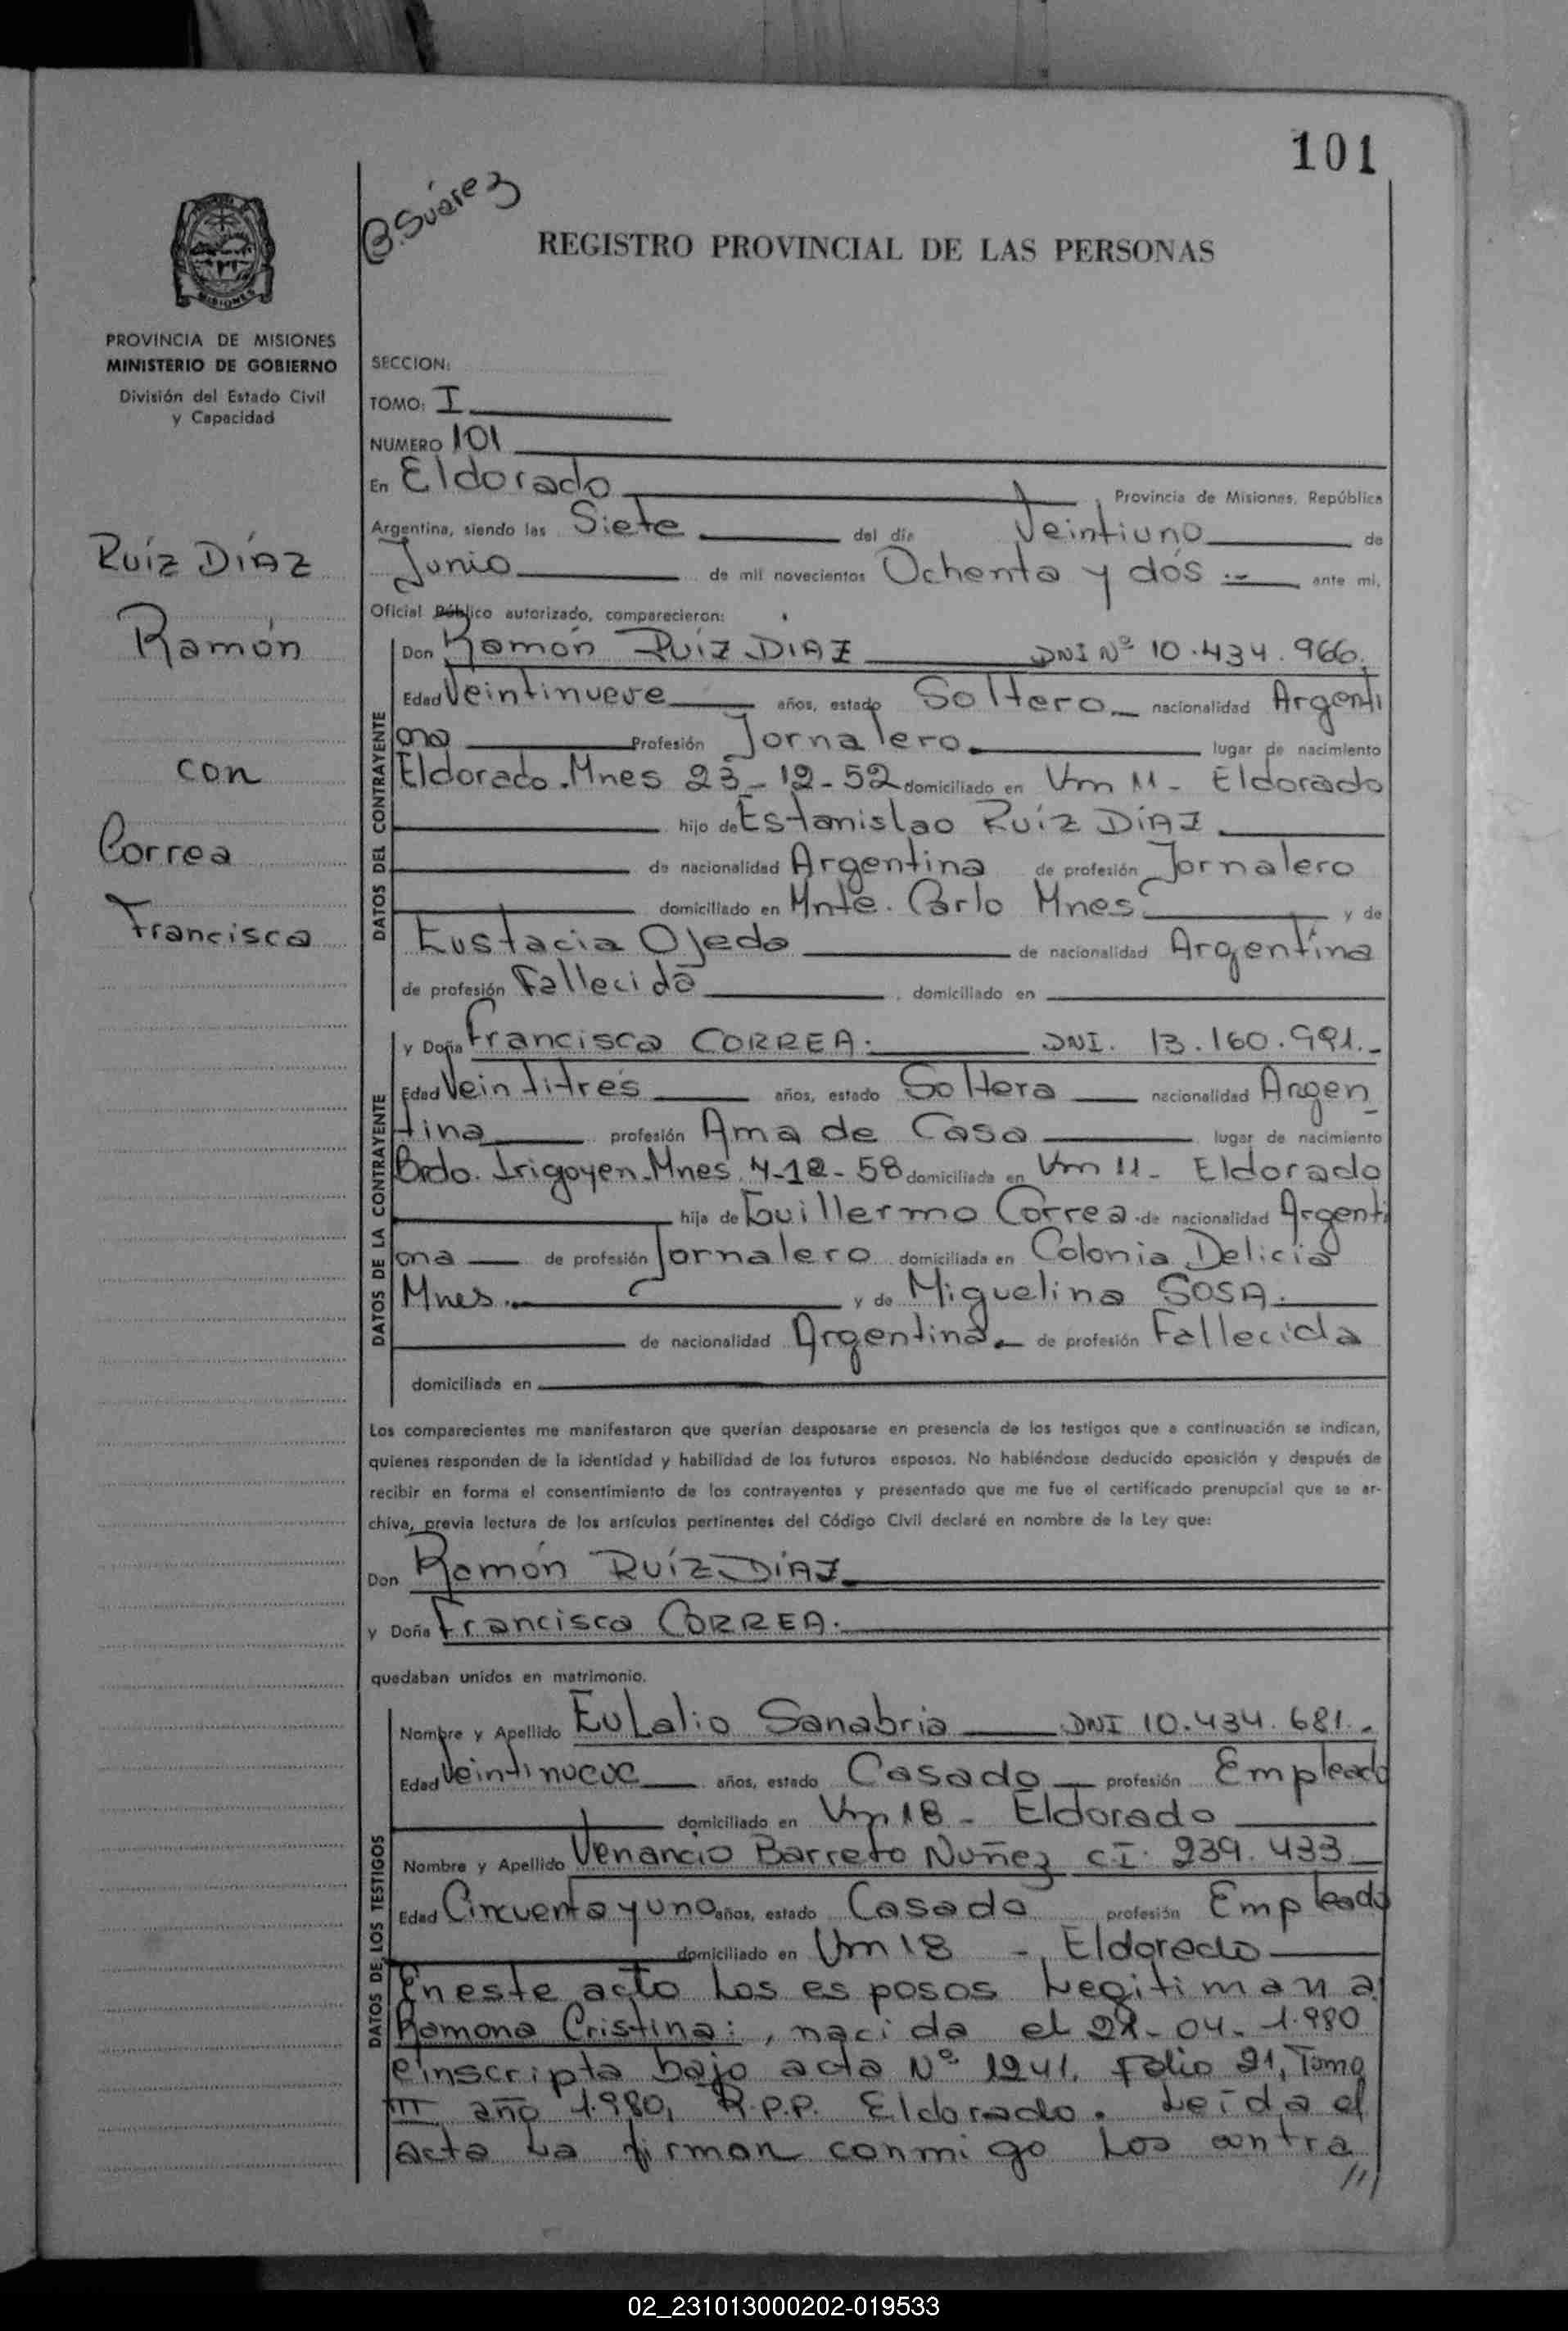 101
B. Suárez
REGISTRO PROVINCIAL DE LAS PERSONAS
MISIONES
PROVINCIA DE MISIONES
MINISTERIO DE GOBIERNO
División del Estado Civil
y Capacidad
Ruíz DÍAZ
Ramón
con
Correa
Francisca
SECCION:
TOMO: I
NUMERO 101
En Eldorado , Provincia de Misiones, República
Argentina, siendo las Siete del día Veintiuno de
Junio de mil novecientos Ochenta y dós ante mi,
Oficial Público autorizado, comparecieron:
DATOS DEL CONTRAYENTE
Don Ramón Ruíz DIAZ DNI Nº 10.434.966.
Edad Veintinueve años, estado Soltero nacionalidad Argenti
na Profesión Jornalero. lugar de nacimiento
Eldorado. Mnes 23-12-52 domiciliado en Km 11 - Eldorado
hijo de Estanislao Ruíz DÍAZ
de nacionalidad Argentina de profesión Jornalero
domiciliado en Mnte. Carlo Mnes y de
Eustacia Ojeda de nacionalidad Argentina
de profesión Fallecida , domiciliado en
DATOS DE LA CONTRAYENTE
y Doña Francisca CORREA. DNI. 13.160.991.-
Edad Veintitrés años, estado Soltera nacionalidad Argen
tina profesión Ama de Casa lugar de nacimiento
Brdo. Irigoyen. Mnes 4-12-58 domiciliada en Km 11 - Eldorado
hija de Guillermo Correa. de nacionalidad Argenti
na de profesión Jornalero domiciliada en Colonia Delicia
Mnes. y de Miguelina SOSA.
de nacionalidad Argentina. de profesión Fallecida
domiciliada en
Los comparecientes me manifestaron que querían desposarse en presencia de los testigos que a continuación se indican,
quienes responden de la identidad y habilidad de los futuros esposos. No habiéndose deducido oposición y después de
recibir en forma el consentimiento de los contrayentes y presentado que me fue el certificado prenupcial que se ar-
chiva, previa lectura de los artículos pertinentes del Código Civil declaré en nombre de la Ley que:
Don Ramón Ruíz DÍAZ
y Doña Francisca CORREA.
quedaban unidos en matrimonio.
DATOS DE LOS TESTIGOS
Nombre y Apellido Eulalio Sanabria DNI 10.434.681.-
Edad Veintinueve años, estado Casado profesión Empleado
domiciliado en Km 18 - Eldorado
Nombre y Apellido Venancio Barreto Nuñez CI. 239.433
Edad Cincuenta y uno años, estado Casado profesión Empleado
domiciliado en Km 18 - Eldorado
En este acto los esposos Legitiman a
Ramona Cristina: , nacida el -04-1.980
e inscripta bajo acta Nº 1241, Folio 21, Tomo
III año 1.980, R.P.P. Eldorado. Leída el
acta La firman conmigo Los contra
///
02_231013000202-019533